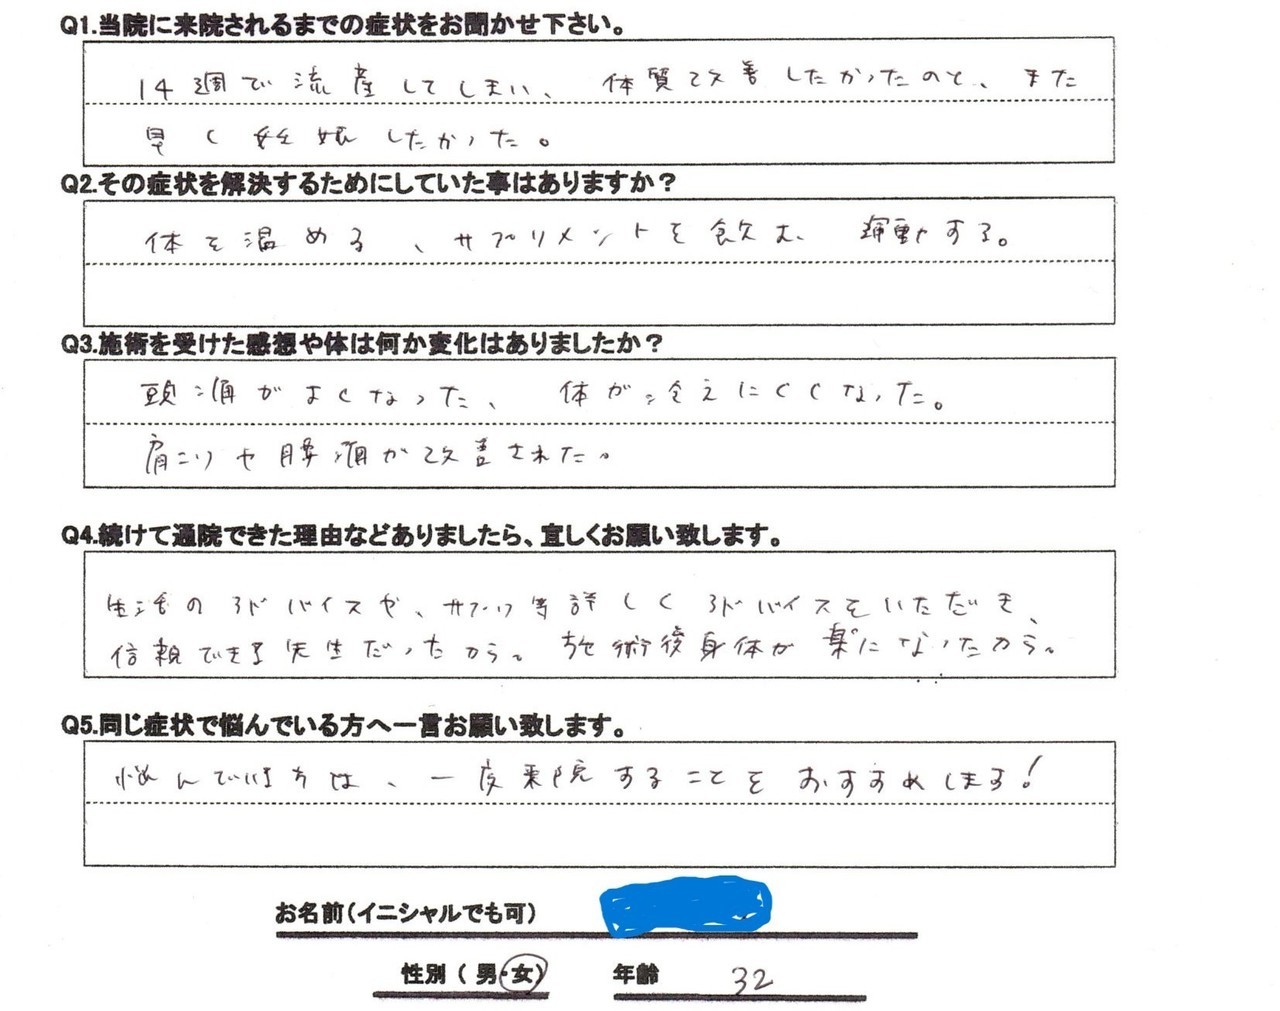 Q1.当院に来院されるまでの症状をお聞かせ下さい。
14週で流産してしまい、体質改善したかったのと、また
早く妊娠したかった。
Q2.その症状を解決するためにしていた事はありますか？
体を温める、サプリメントを飲む、運動する。
Q3.施術を受けた感想や体は何か変化はありましたか？
頭痛がよくなった、体が冷えにくくなった。
肩こりや腰痛が改善された。
Q4.続けて通院できた理由などありましたら、宜しくお願い致します。
生活のアドバイスや、サプリ等詳しくアドバイスをいただき、
信頼できる先生だったから。施術後身体が楽になったから。
Q5.同じ症状で悩んでいる方へ一言お願い致します。
悩んでいる方は、一度来院することをおすすめします!
お名前(イニシャルでも可)
性別(男・女) 年齢 32